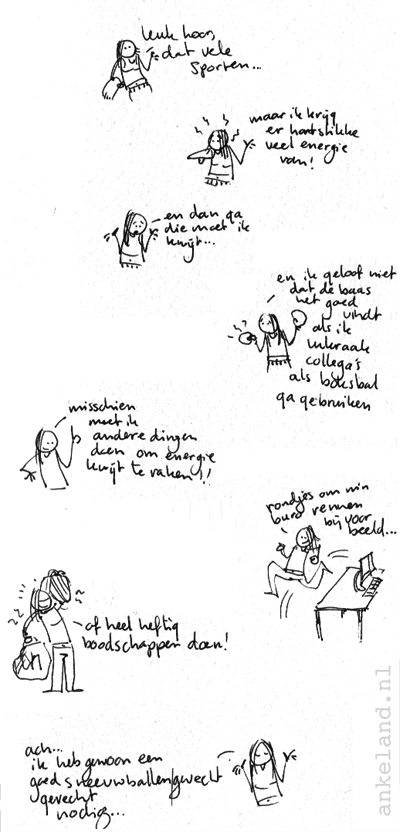 leuk hoor,
dat vele
sporten...
maar ik krijg
er hartstikke
veel energie
van!
en dan ga
die moet ik
kwijt...
en ik geloof niet
dat de baas
het goed
vindt
als ik
collega's
als boksbal
ga gebruiken
misschien
moet ik
andere dingen
doen om energie
kwijt te raken!!
rondjes om mijn
buro rennen
bijvoor
beeld...
of heel heftig
boodschappen doen!
ach...
ik heb gewoon een
goed sneeuwballengevecht
gevecht
nodig...
ankeland.nl